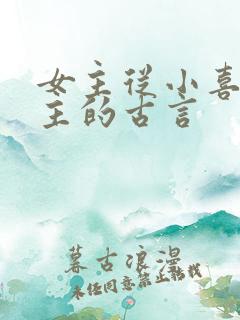 女主从小喜
主的古言
暮古浪漫
未经同意禁止转载